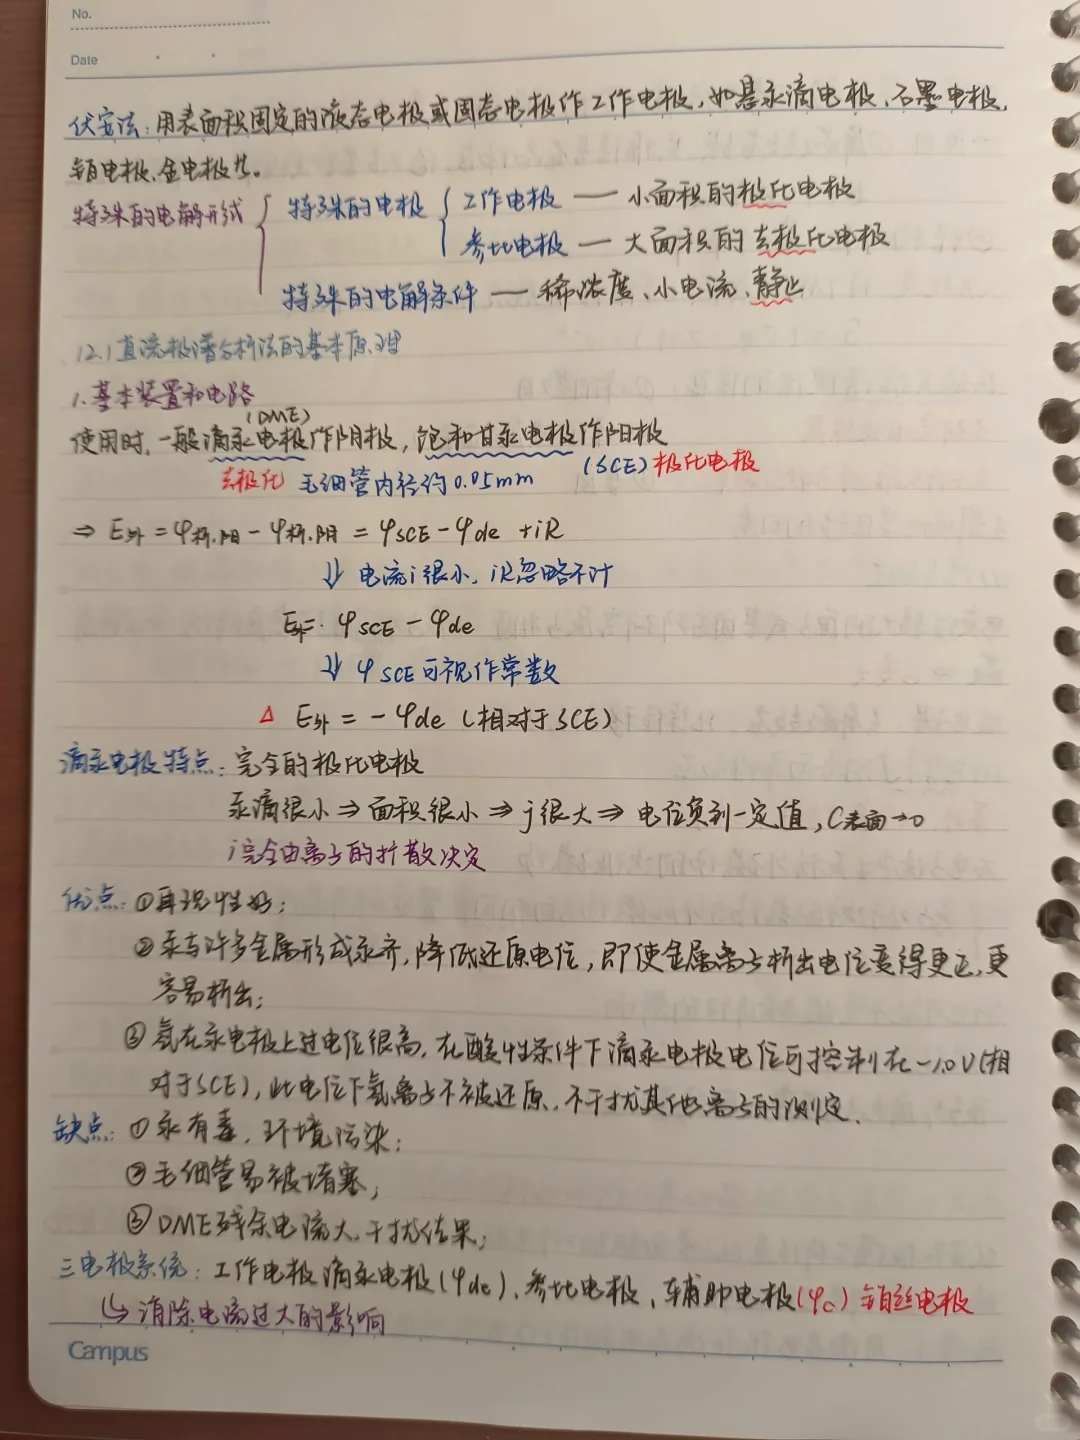 No.
Date
伏安法：用表面积固定的液态电极或固态电极作工作电极，如悬汞滴电极、石墨电极、
铂电极、金电极共。
特殊的电解形式 { 特殊的电极 { 工作电极 — 小面积的极化电极
参比电极 — 大面积的去极化电极
特殊的电解条件 — 稀浓度、小电流、静止
12.1 直流极谱分析法的基本原理
1.基本装置和电路
(DME)
使用时，一般滴汞电极作阴极，饱和甘汞电极作阳极
去极化 毛细管内径约0.05mm (SCE) 极化电极
⇒ E外 = φ析.阳 - φ析.阴 = φSCE - φde + iR
⇓ 电流i很小，iR忽略不计
E外= φSCE - φde
⇓ φSCE可视作常数
△ E外 = -φde (相对于SCE)
滴汞电极特点：完全的极化电极
汞滴很小⇒面积很小⇒j很大⇒电位负到一定值，C表面→0
i完全由离子的扩散决定
优点：①再现性好；
②汞与许多金属形成汞齐，降低还原电位，即使金属离子析出电位变得更正，更
容易析出；
③氢在汞电极上过电位很高，在酸性条件下滴汞电极电位可控制在-1.0V(相
对于SCE)，此电位下氢离子不被还原，不干扰其他离子的测定.
缺点：①汞有毒，环境污染；
②毛细管易被堵塞；
③DME残余电流大，干扰结果；
三电极系统：工作电极滴汞电极(φde)、参比电极、辅助电极(φc) 铂丝电极
↳ 消除电流过大的影响
Campus